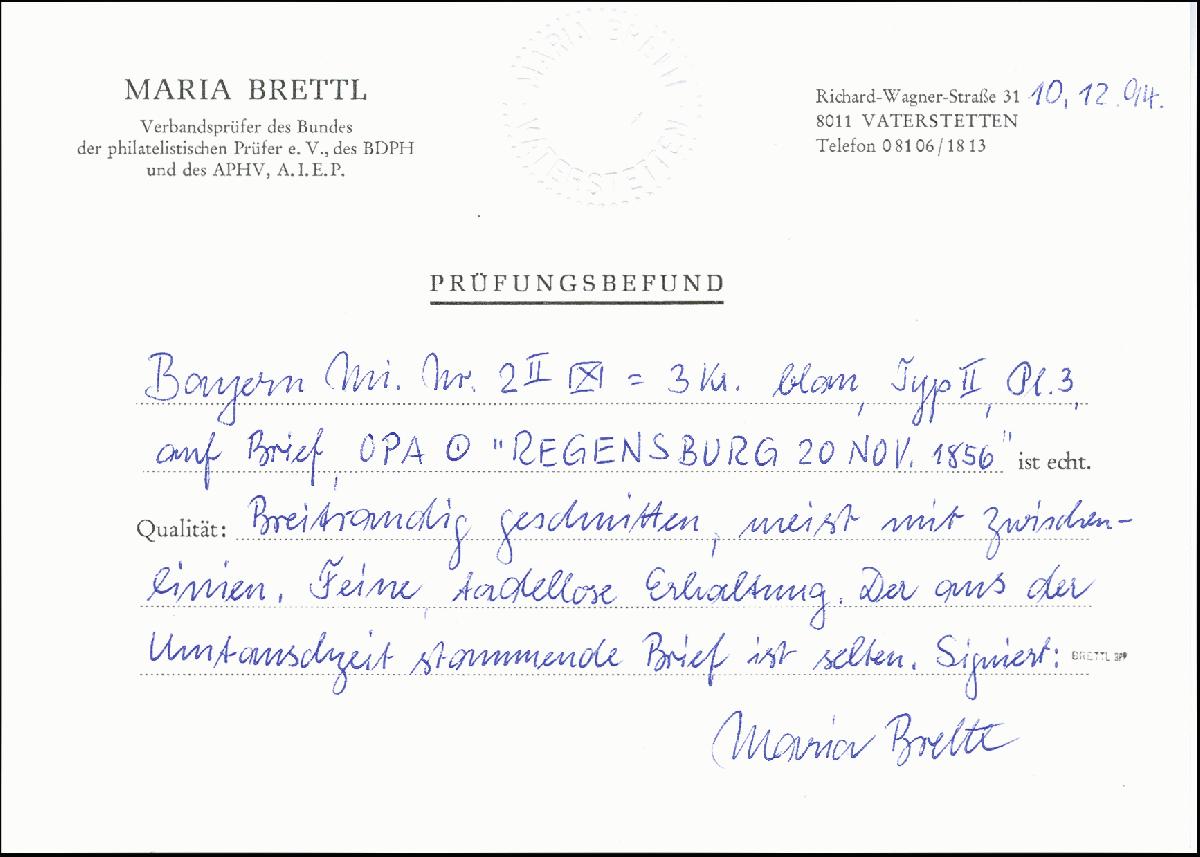 MARIA BRETTL
VATERSTETTEN
MARIA BRETTL
Verbandsprüfer des Bundes
der philatelistischen Prüfer e. V., des BDPH
und des APHV, A.I.E.P.
Richard-Wagner-Straße 31 10.12.94.
8011 VATERSTETTEN
Telefon 08106/1813
PRÜFUNGSBEFUND
Bayern Mi. Nr. 2 II = 3 Kr. blau, Typ II, Pl. 3,
auf Brief, OPA "REGENSBURG 20 NOV. 1856" ist echt.
Qualität: Breitrandig geschnitten, meist mit Zwischen-
linien. Feine, tadellose Erhaltung. Der aus der
Umtauschzeit stammende Brief ist selten. Signiert: BRETTL BPP
Maria Brettl